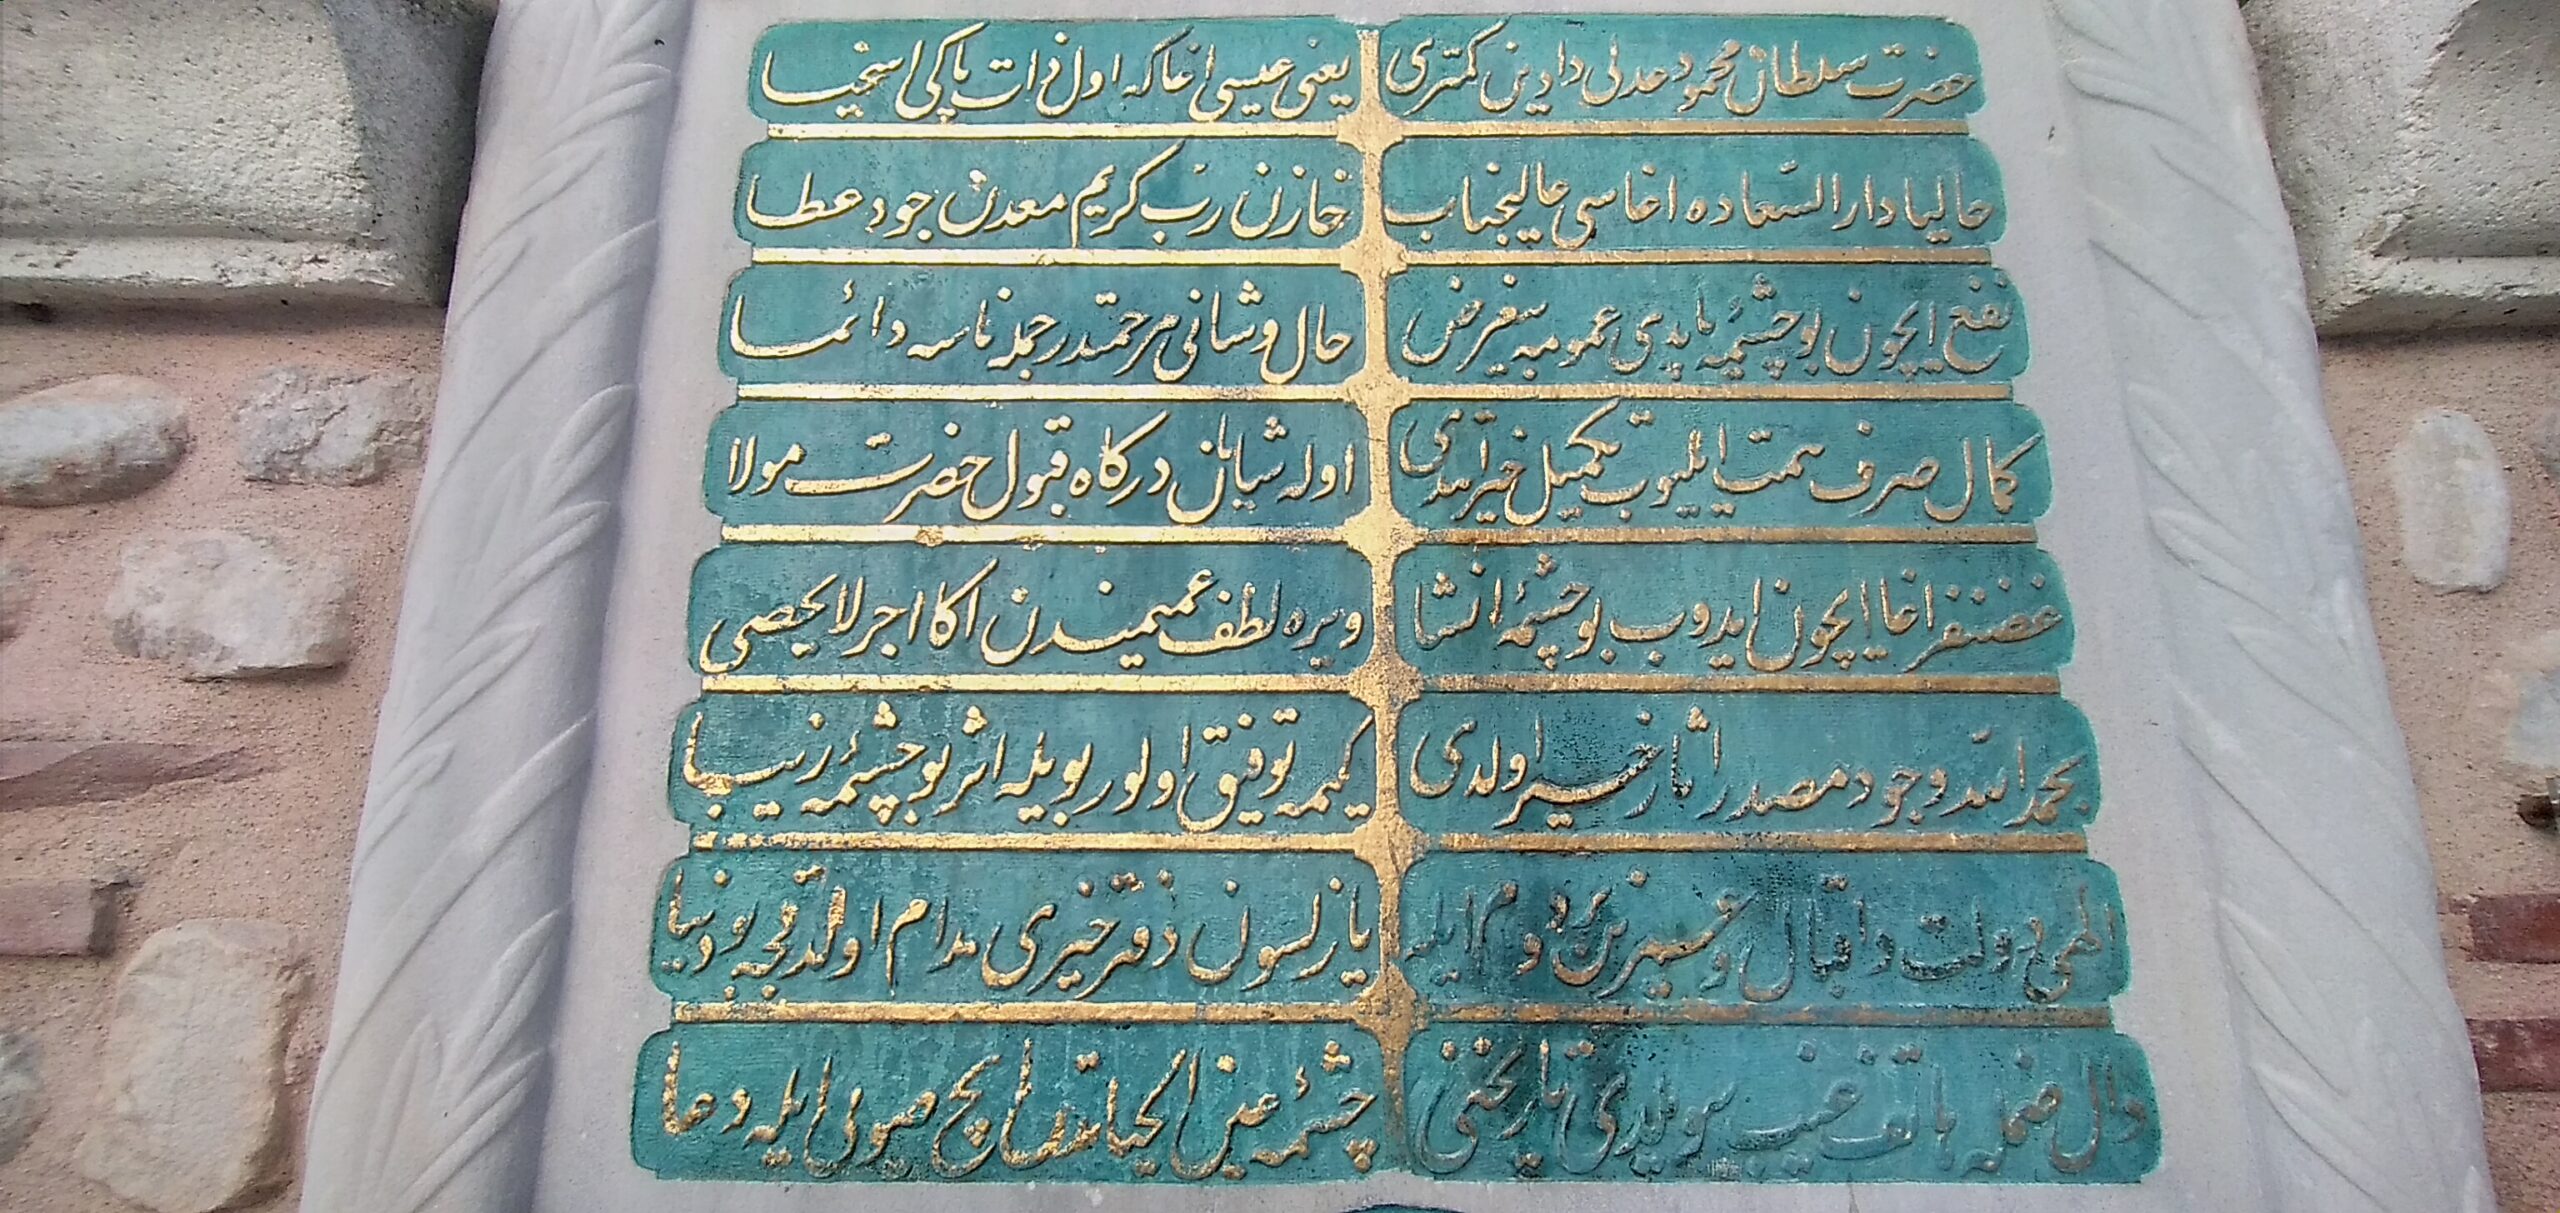 حضرت سلطان محمود عدلی دادین کمتری
یعنی عیسی اغا که اول ذات پاکی اسخیا
حالیا دار السعاده اغاسی عالیجناب
خازن رب کریم معدن جود عطا
نفع ایچون بو چشمه یاپدی عمومه بیغرض
حال و شانی مرحمتدر جمله ناسه دائما
کمال صرف همت ایلیوب تکمیل خیر اتدی
اوله شایان درکاه قبول حضرت مولا
غضنفر اغا ایچون ایدوب بو چشمه انشا
ویره لطف عمیمندن اکا اجر لایحصی
بحمد الله وجود مصدر اثار خیر اولدی
کیمه توفیق اولور بویله اثر بو چشمه زیبا
الهی دولت و اقبال و عمر بر دوام ایله
یازلسون دفتر خیری مدام اولدقجه بو دنیا
دال ضمله هاتف غیب سویلدی تاریخنی
چشمه عین الحیاتدن ایچ صویی ایله دعا